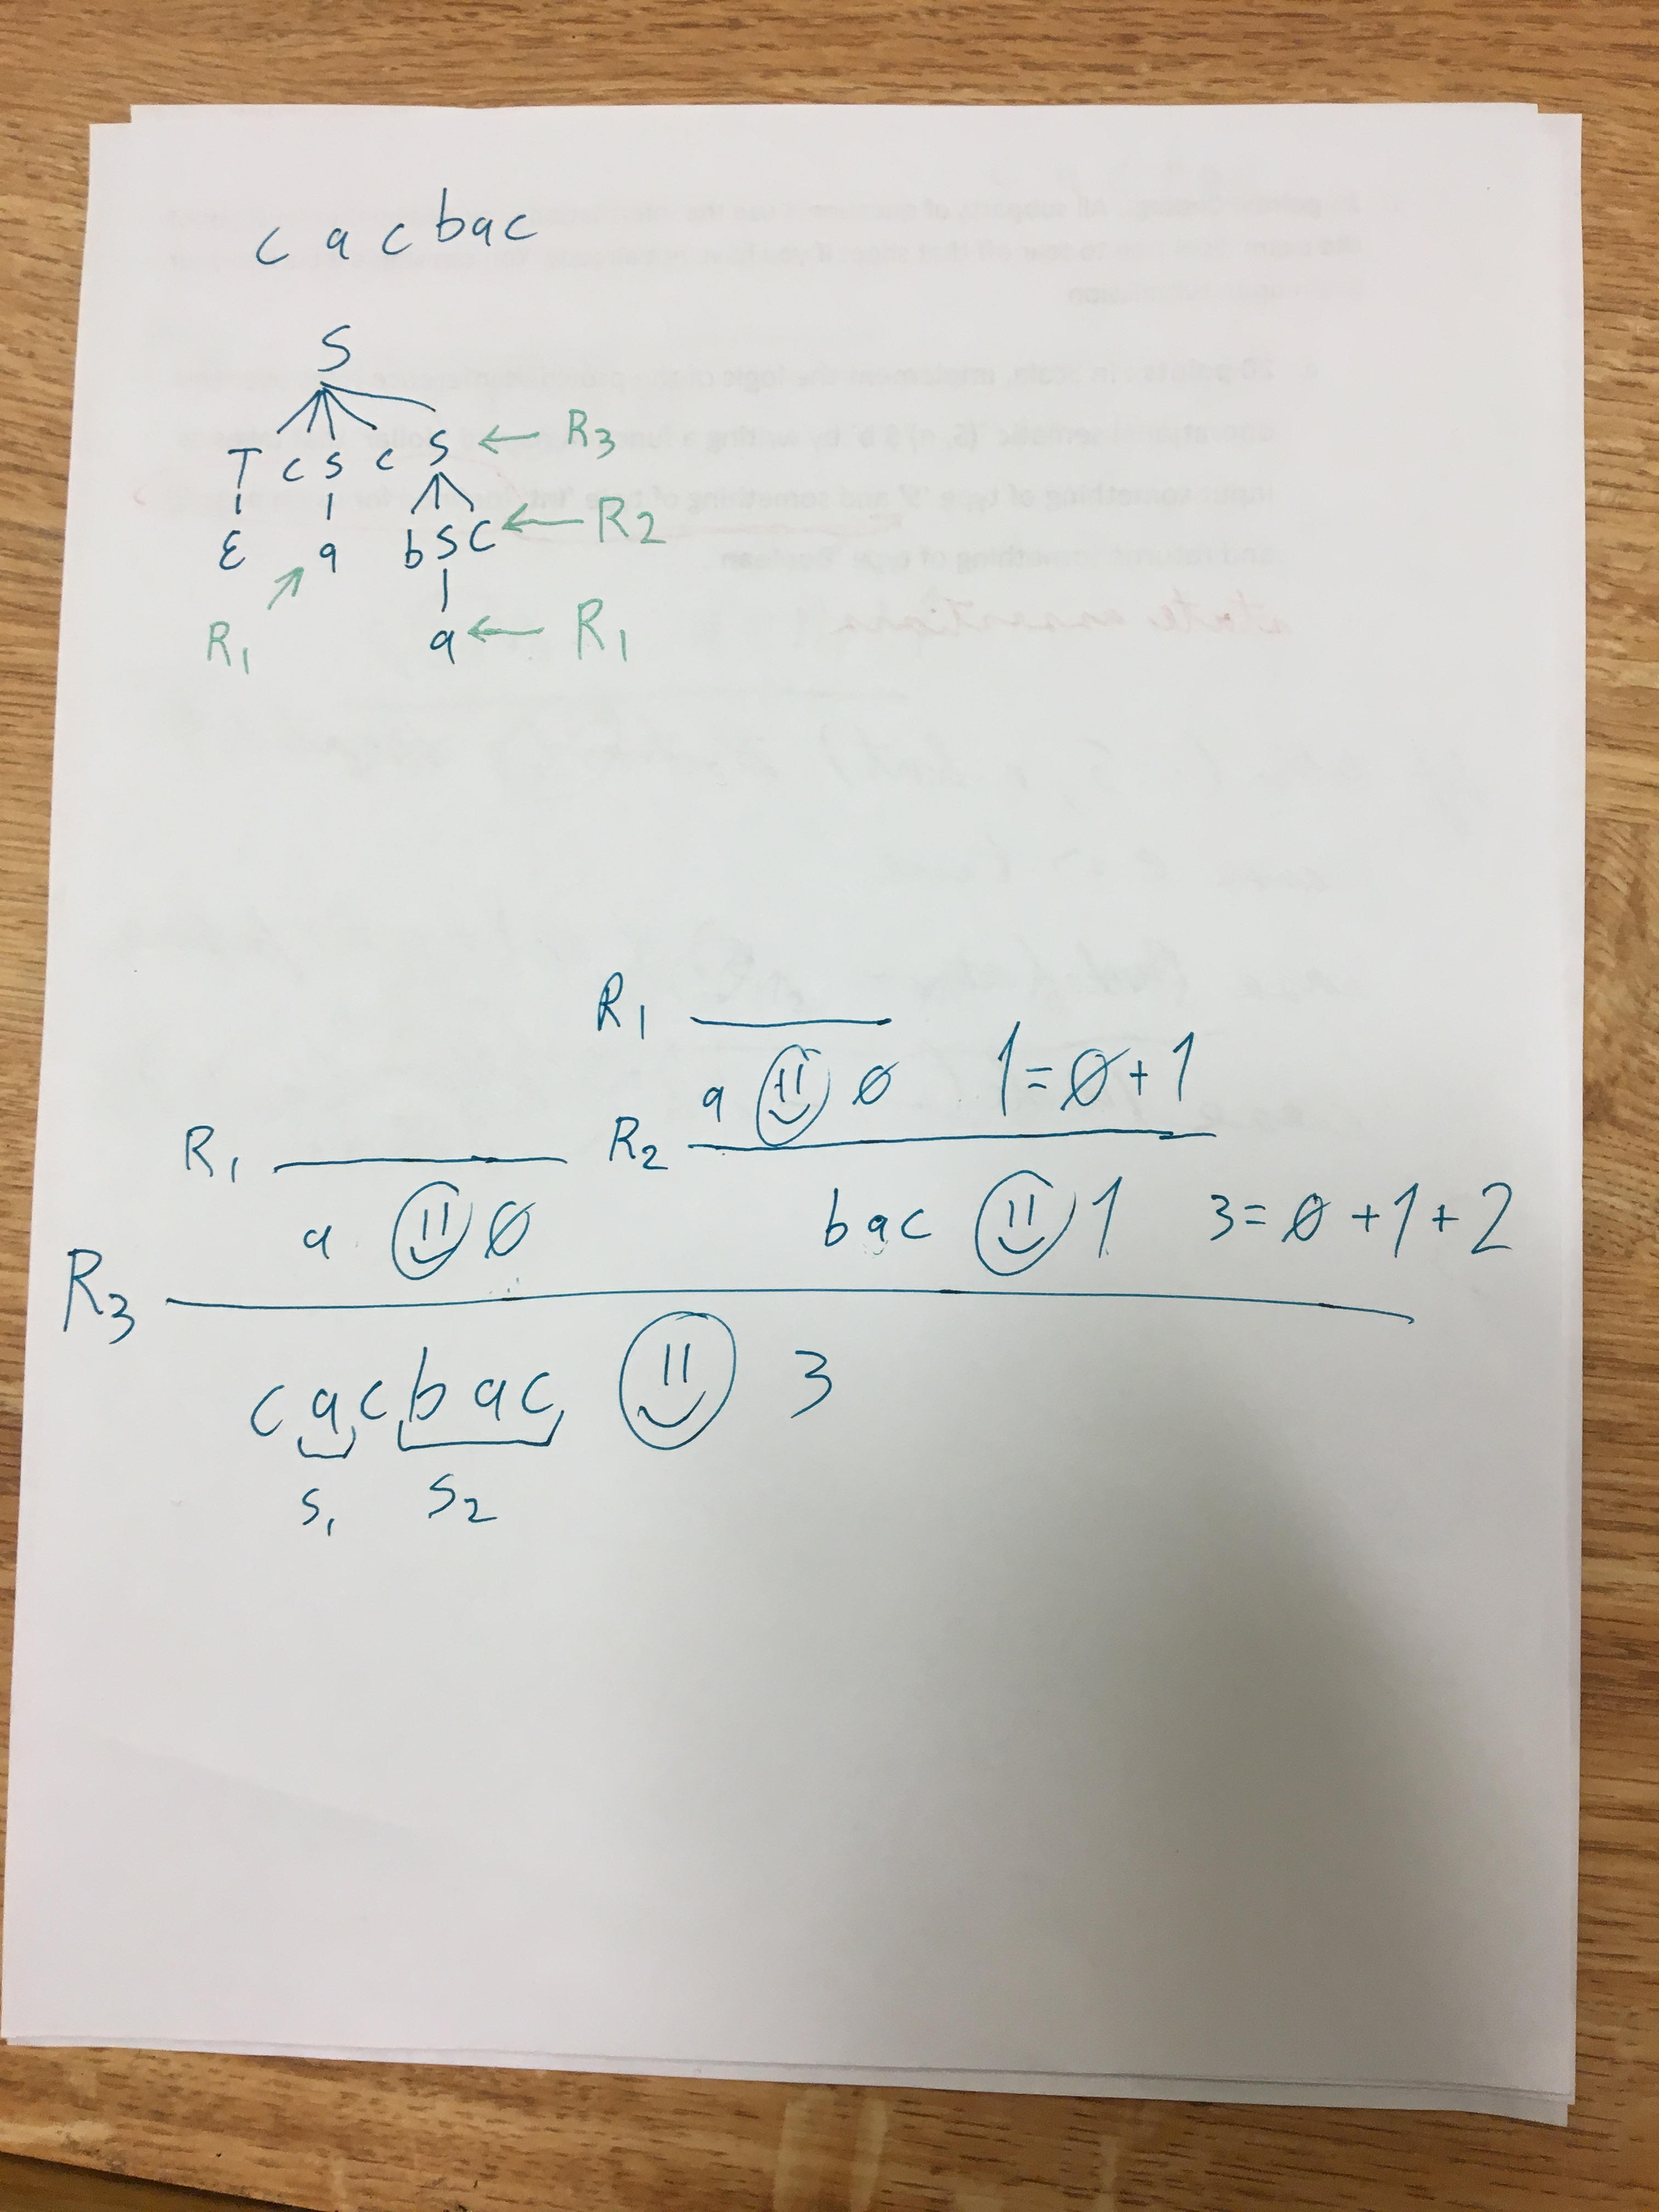 c a c b a c
S
T c s c s ← R3
ε a b S c ← R2
R1 a ← R1
R1
a ☺ 0 1 = 0 + 1
R1 R2
a ☺ 0 b a c ☺ 1 3 = 0 + 1 + 2
R3
c a c b a c ☺ 3
S1 S2